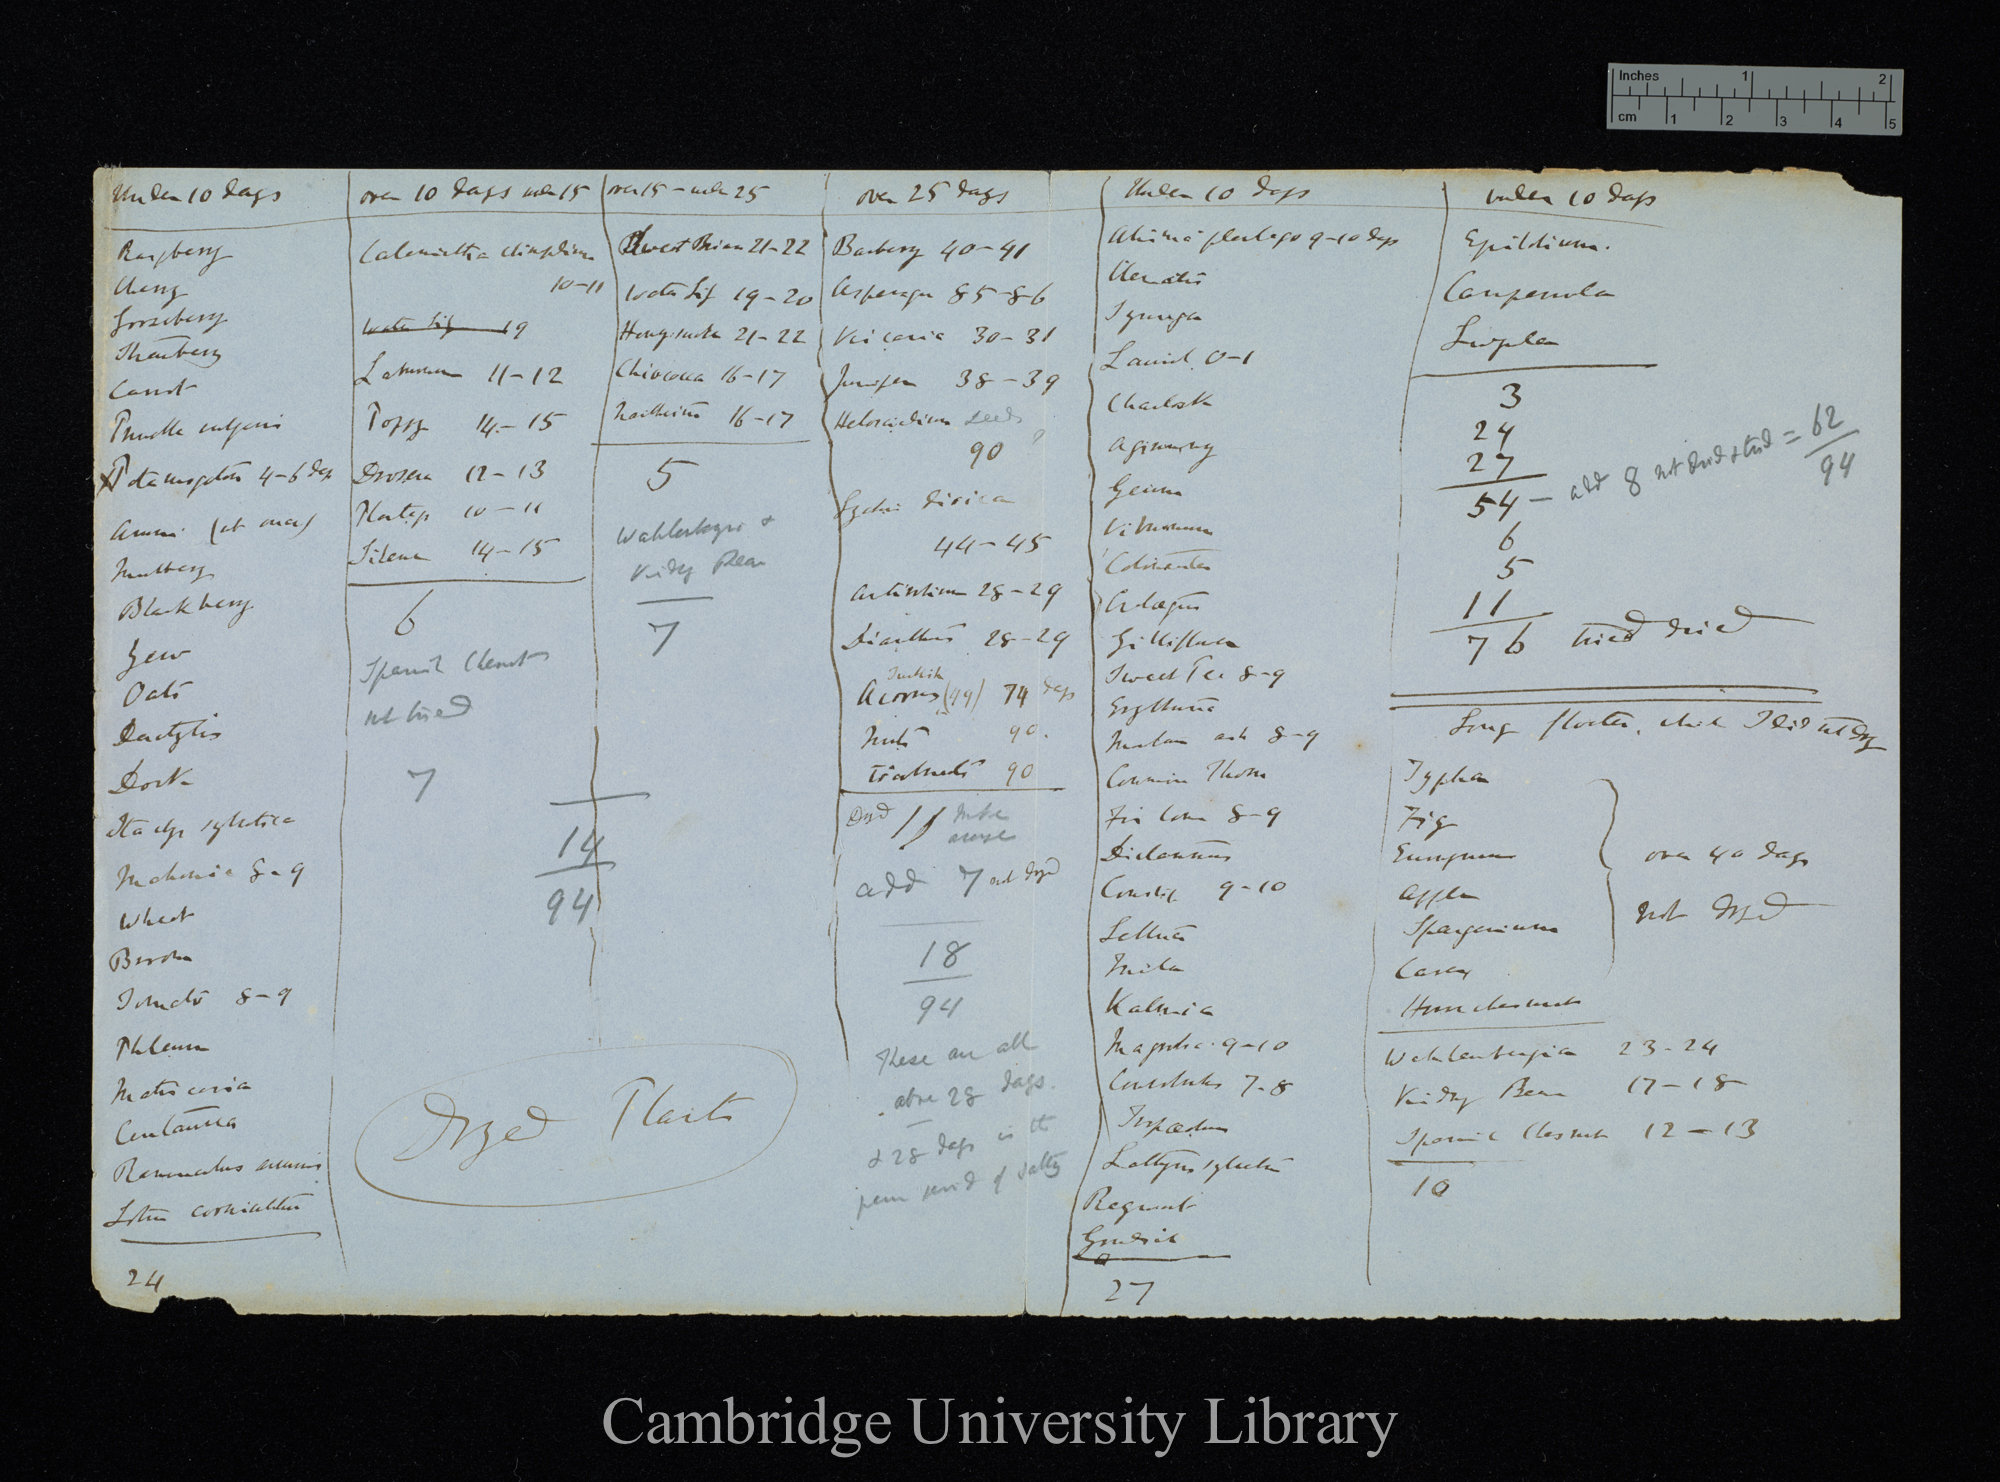 Inches 1 2
cm 1 2 3 4 5
Under 10 days
Raspberry
Cherry
Gooseberry
Strawberry
Carrot
Prunella vulgaris
Potamogeton 4-6 days
Arum
Mulberry
Blackberry
Yew
Oats
Dactylis
Dock
Stachys sylvatica
Mahonia 8-9
Wheat
Tomato 8-9
Phleum
Matricaria
Centaurea
Ranunculus
Lotus corniculatus
24
over 10 days under 15
Calamintha clinopodium
10-11
19
Laburnum 11-12
Poppy 14-15
Drosera 12-13
10-11
Silene 14-15
6
Spanish Chesnut
not tried
7
14
94
Dryed Plants
over 15 - under 25
Sweet Briar 21-22
19-20
Honeysuckle 21-22
Chiococca 16-17
Narthecium 16-17
5
Wahlenbergia &
Kidney Bean
7
over 25 days
Barberry 40-41
Asparagus 85-86
30-31
Juniper 38-39
Helosciadium seeds
90 ?
Lychnis dioica
44-45
28-29
Dianthus 28-29
Turkish
Acorns (99) 74 days
Nuts 90.
90
Dryd 11
add 7 not dryed
18
94
These are all
above 28 days.
& 28 days is the
Under 10 days
Alisma plantago 9-10 days
Clematis
Syringa
Laurel 0-1
Charlock
Agrimony
Geum
Viburnum
Cotoneaster
Crataegus
Gilliflower
Sweet Pea 8-9
Erythraea
Mountain ash 8-9
Common Thorn
Fir Cone 8-9
Dictamnus
Cowslip 9-10
Lettuce
Kalmia
Magnolia 9-10
Convolvulus 7-8
Lathyrus sylvestris
Ragwort
27
under 10 days
Epilobium.
Campanula
3
24
27
54 - add 8 not dried & tried = 62
94
6
5
11
76 tried dried
Long floater, which I did not dry
Typha
Fig
Euonymus
Apple
Sparganium
Carex
Horse chesnuts
over 40 days
not dryed
Wahlenbergia 23-24
Kidney Bean 17-18
Spanish Chesnut 12-13
10
Cambridge University Library